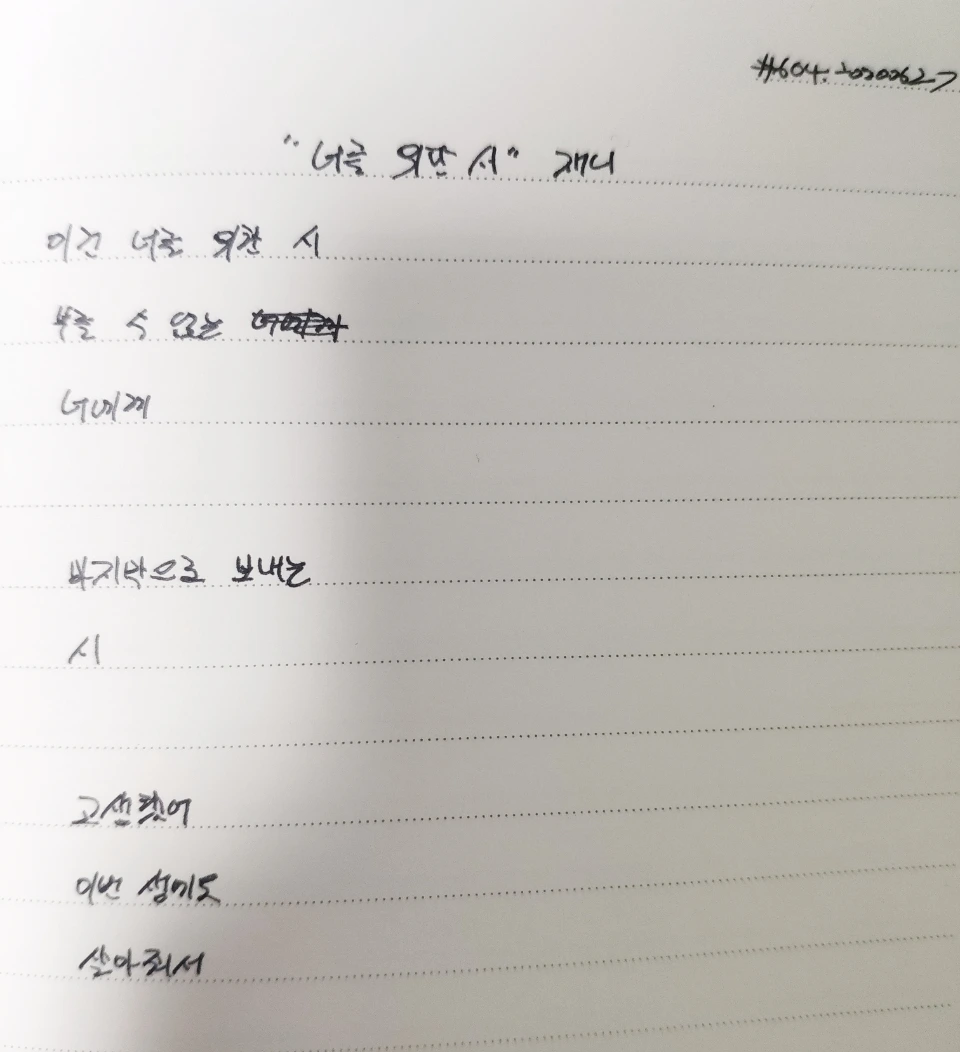 #604. 20200627
"너를 위한 시" 재니
이건 너를 위한 시
부를 수 없는
너에게
마지막으로 보내는
시
고생했어
이번 생에도
살아줘서